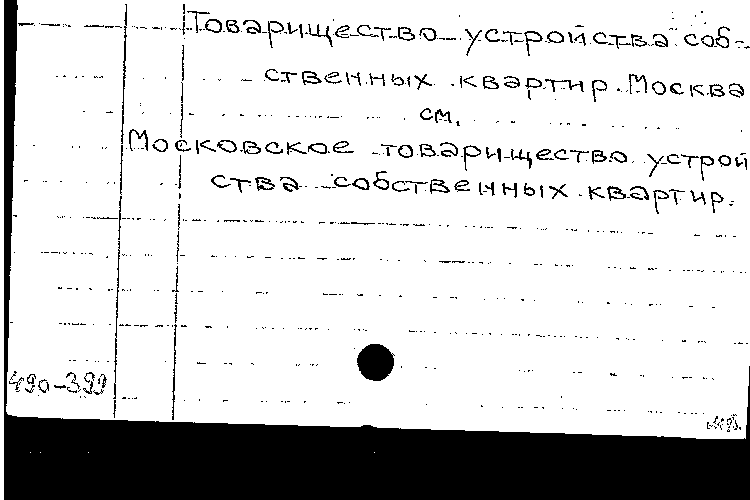 Товарищество устройства соб-
ственных квартир. Москва
см.
Московское товарищество устрой
ства собственных квартир.
490-399